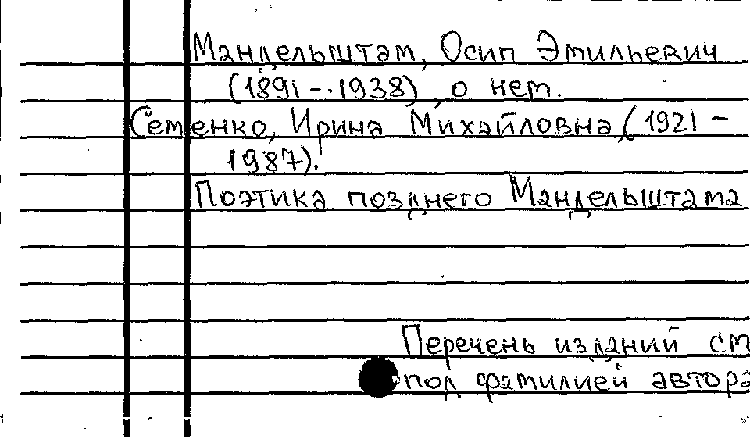 Мандельштам, Осип Эмильевич
(1891 - 1938), о нем.
Семенко, Ирина Михайловна, (1921 -
1987).
Поэтика позднего Мандельштама
Перечень изданий см
под фамилией автора